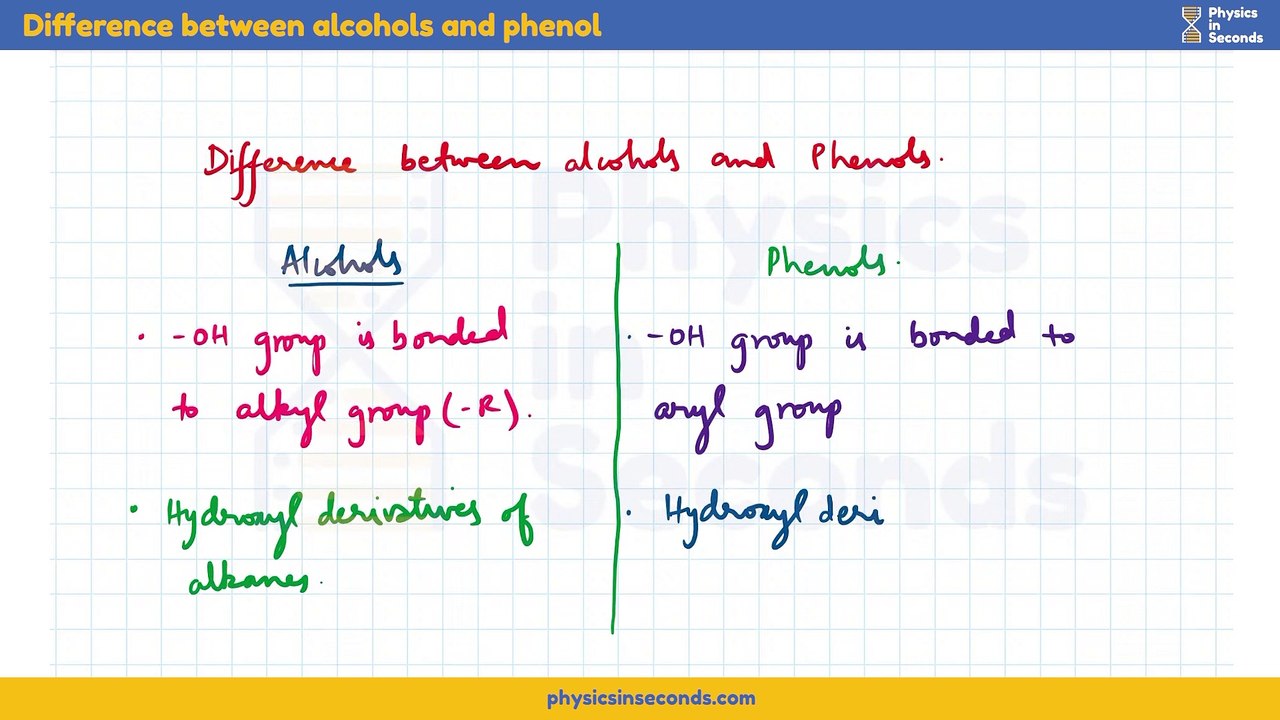 Difference between alcohols and phenol
Physics
in
Seconds
Difference between alcohols and Phenols.
Alcohols
• -OH group is bonded
to alkyl group (-R).
• Hydroxyl derivatives of
alkanes.
Phenols.
• -OH group is bonded to
aryl group
• Hydroxyl deri
Physics
in
Seconds
physicsinseconds.com